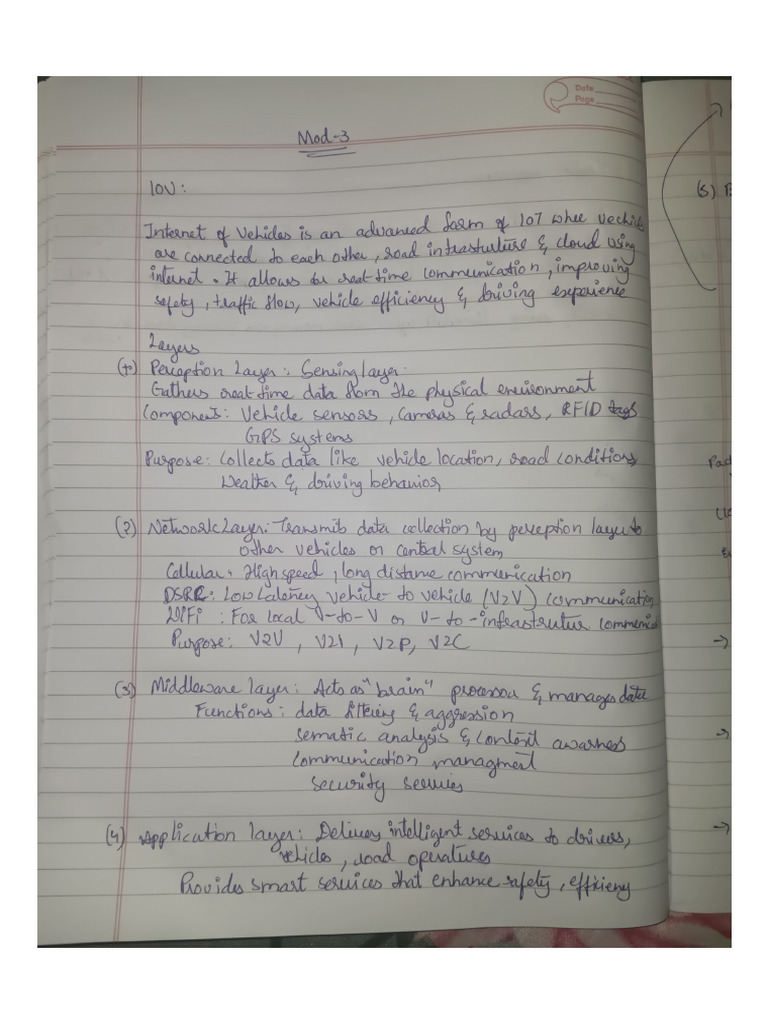 Date
Page
Mod-3
IOV:
Internet of Vehicles is an advanced form of IOT whee vechicle
are connected to each other, road infrasturture & cloud using
internet. It allows for real-time communication, improving
safety, traffic flow, vehicle efficiency & driving experience
Layers
(1) Perception Layer: Sensing layer:
Gathers real-time data from the physical environment
Components: Vehicle sensors, cameras & radars, RFID tags
GPS systems
Purpose: Collects data like vehicle location, road conditions
Weather & driving behavior
(2) Network Layer: Transmits data collection by perception layer to
other vehicles or central system
Cellular: High speed, long distance communication
DSRC: Low Latency vehicle to vehicle (V2V) communication
WiFi : For local V-to-V or V-to-infrastrutur communicat
Purpose: V2V, V2I, V2P, V2C
(3) Middleware layer: Acts as "brain" processor & manages data
Functions: data filtering & aggression
sematic analysis & content awarness
communication managment
security servies
(4) Application layer: Delivery intelligent services to drivers,
vehicles, road operatures
Provides smart services that enhance safety, efficieny
(5)